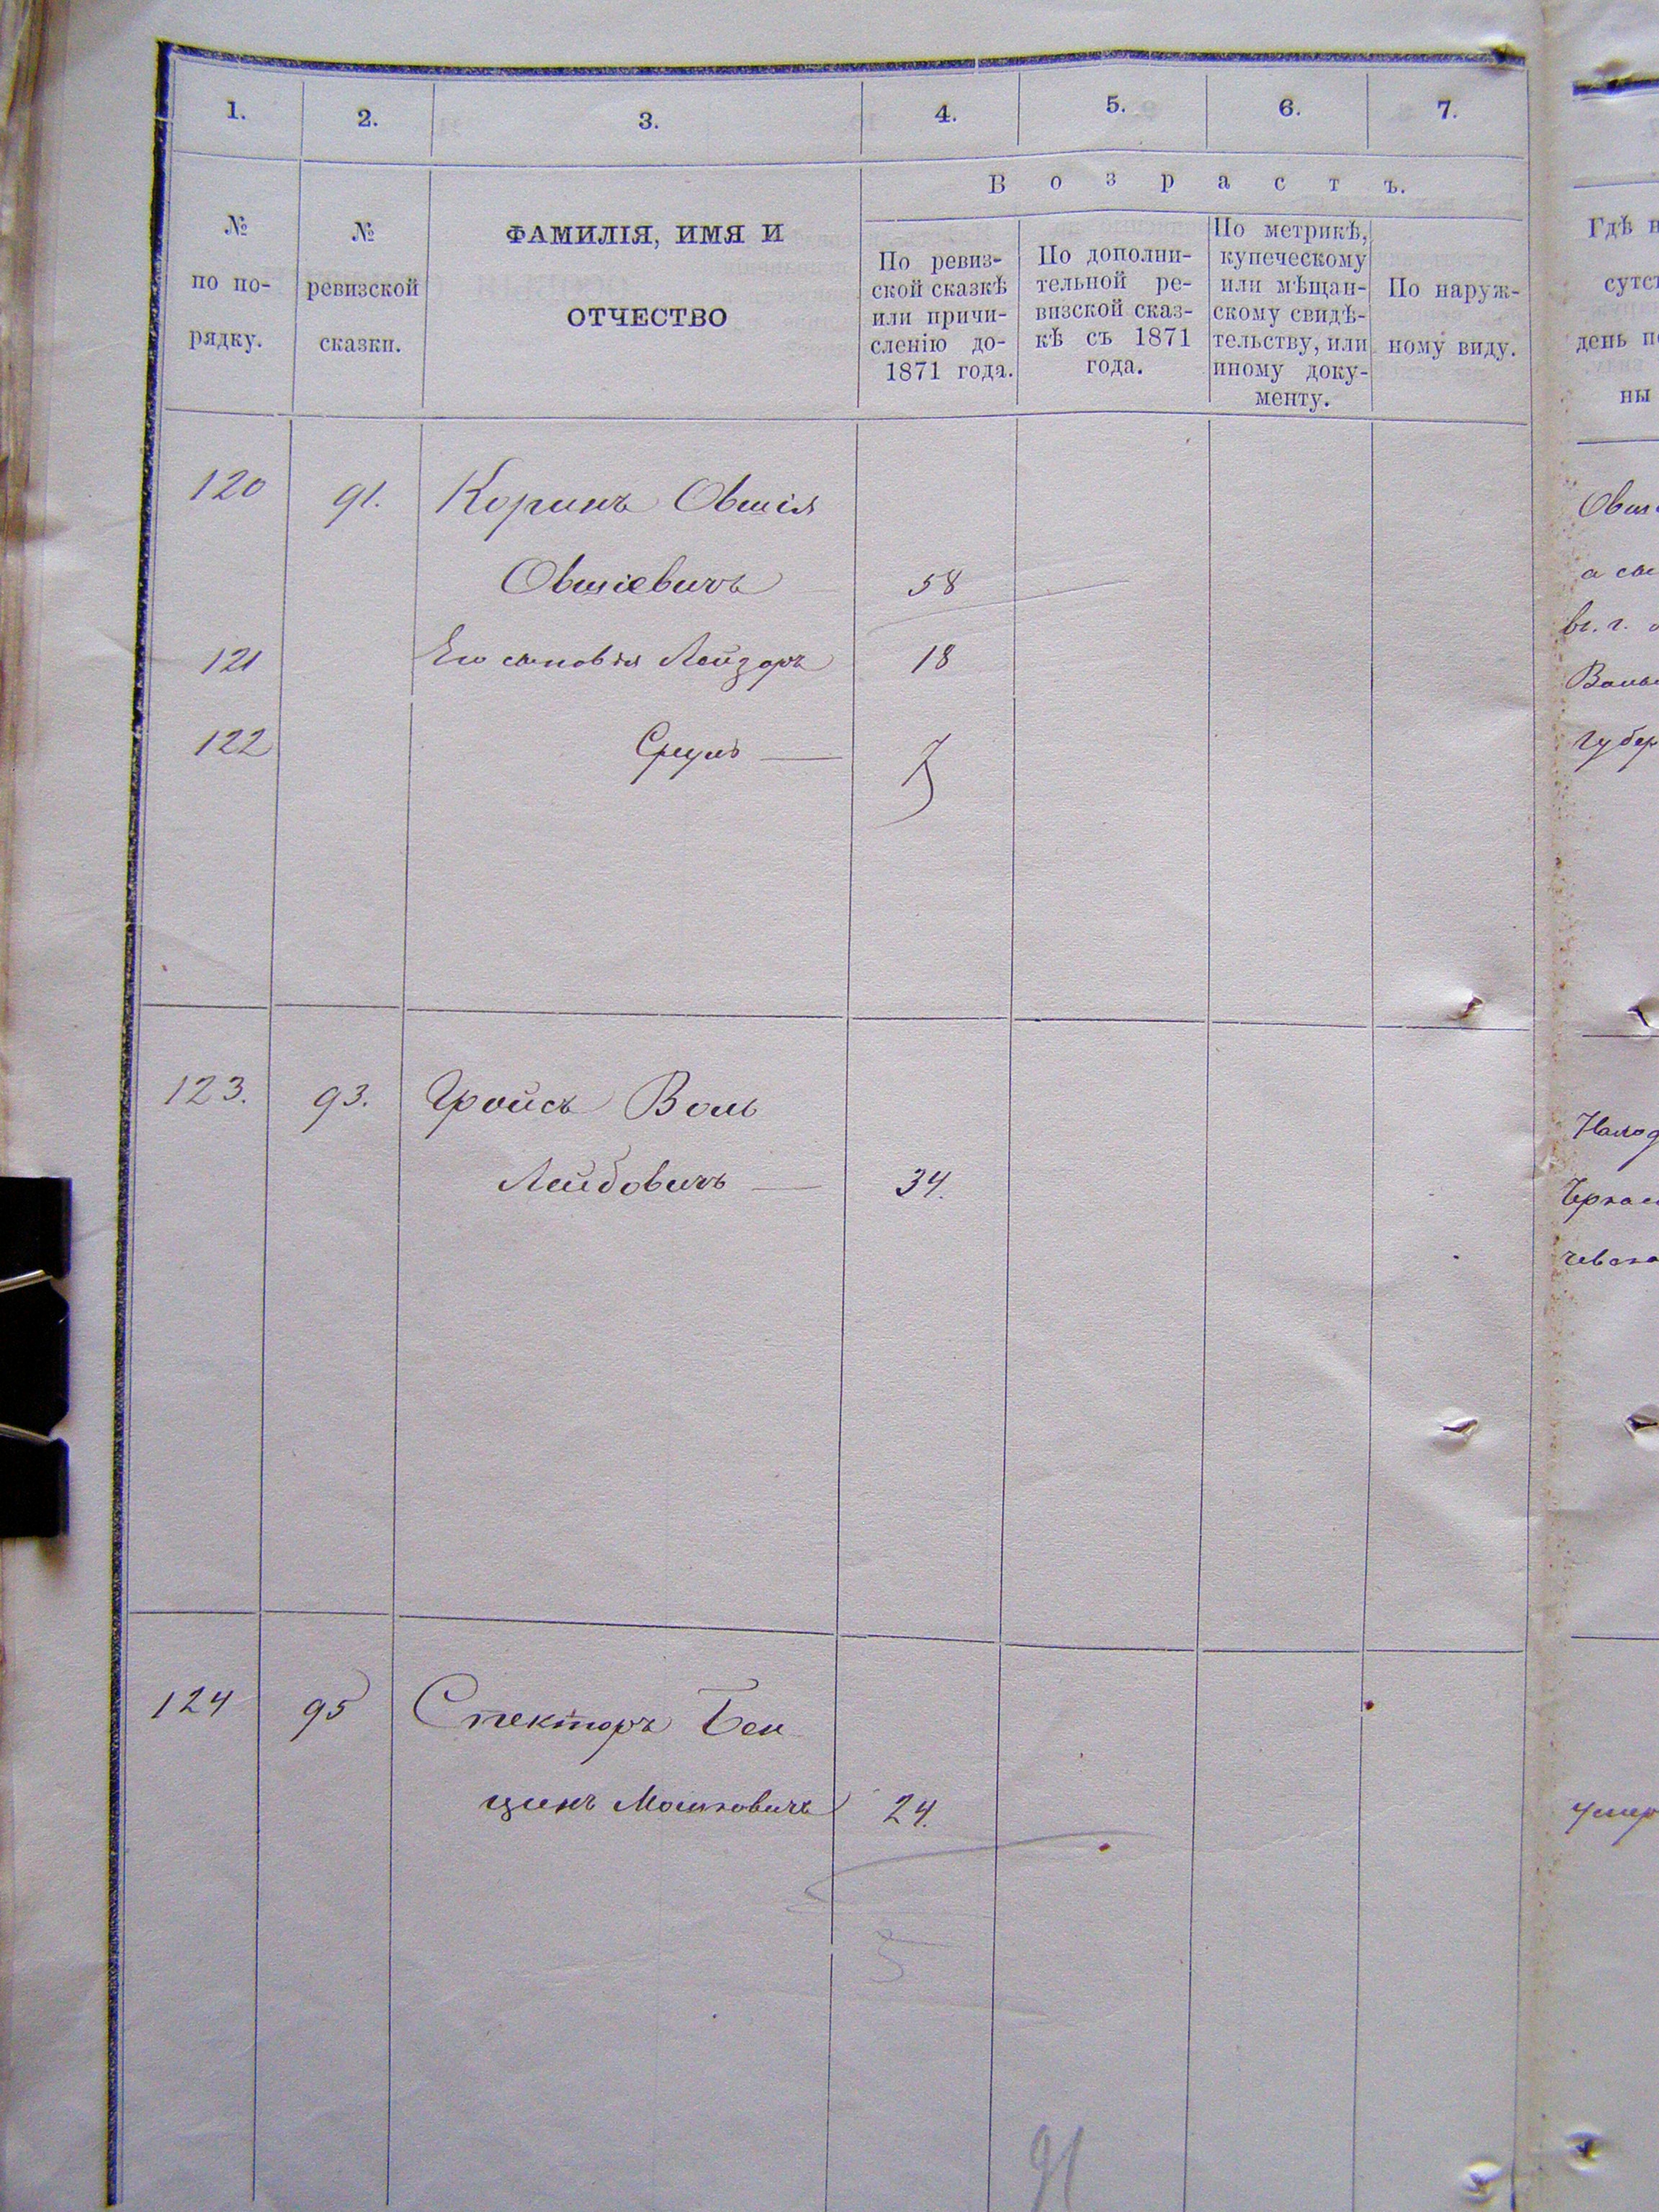 1. 2. 3. 4. 5. 6. 7.
В о з р а с т ъ.
№ по по- рядку.
№ ревизской сказки.
ФАМИЛІЯ, ИМЯ И
ОТЧЕСТВО
По ревиз-
ской сказкѣ
или причи-
сленію до-
1871 года.
По дополни-
тельной ре-
визской сказ-
кѣ съ 1871
года.
По метрикѣ,
купеческому
или мѣщан-
скому свидѣ-
тельству, или
иному доку-
менту.
По наруж-
ному виду.
120 91. Коринъ Овшія
Овшіевичъ 58
121 Его сыновья Лейзоръ 18
122 Сруль — 7
123. 93. Гройсъ Воль
Лейбовичъ — 34.
124 95 Спекторъ Бен
ціинъ Мошковичъ 24.
91
Гдѣ
день
ны
а
вг. г.